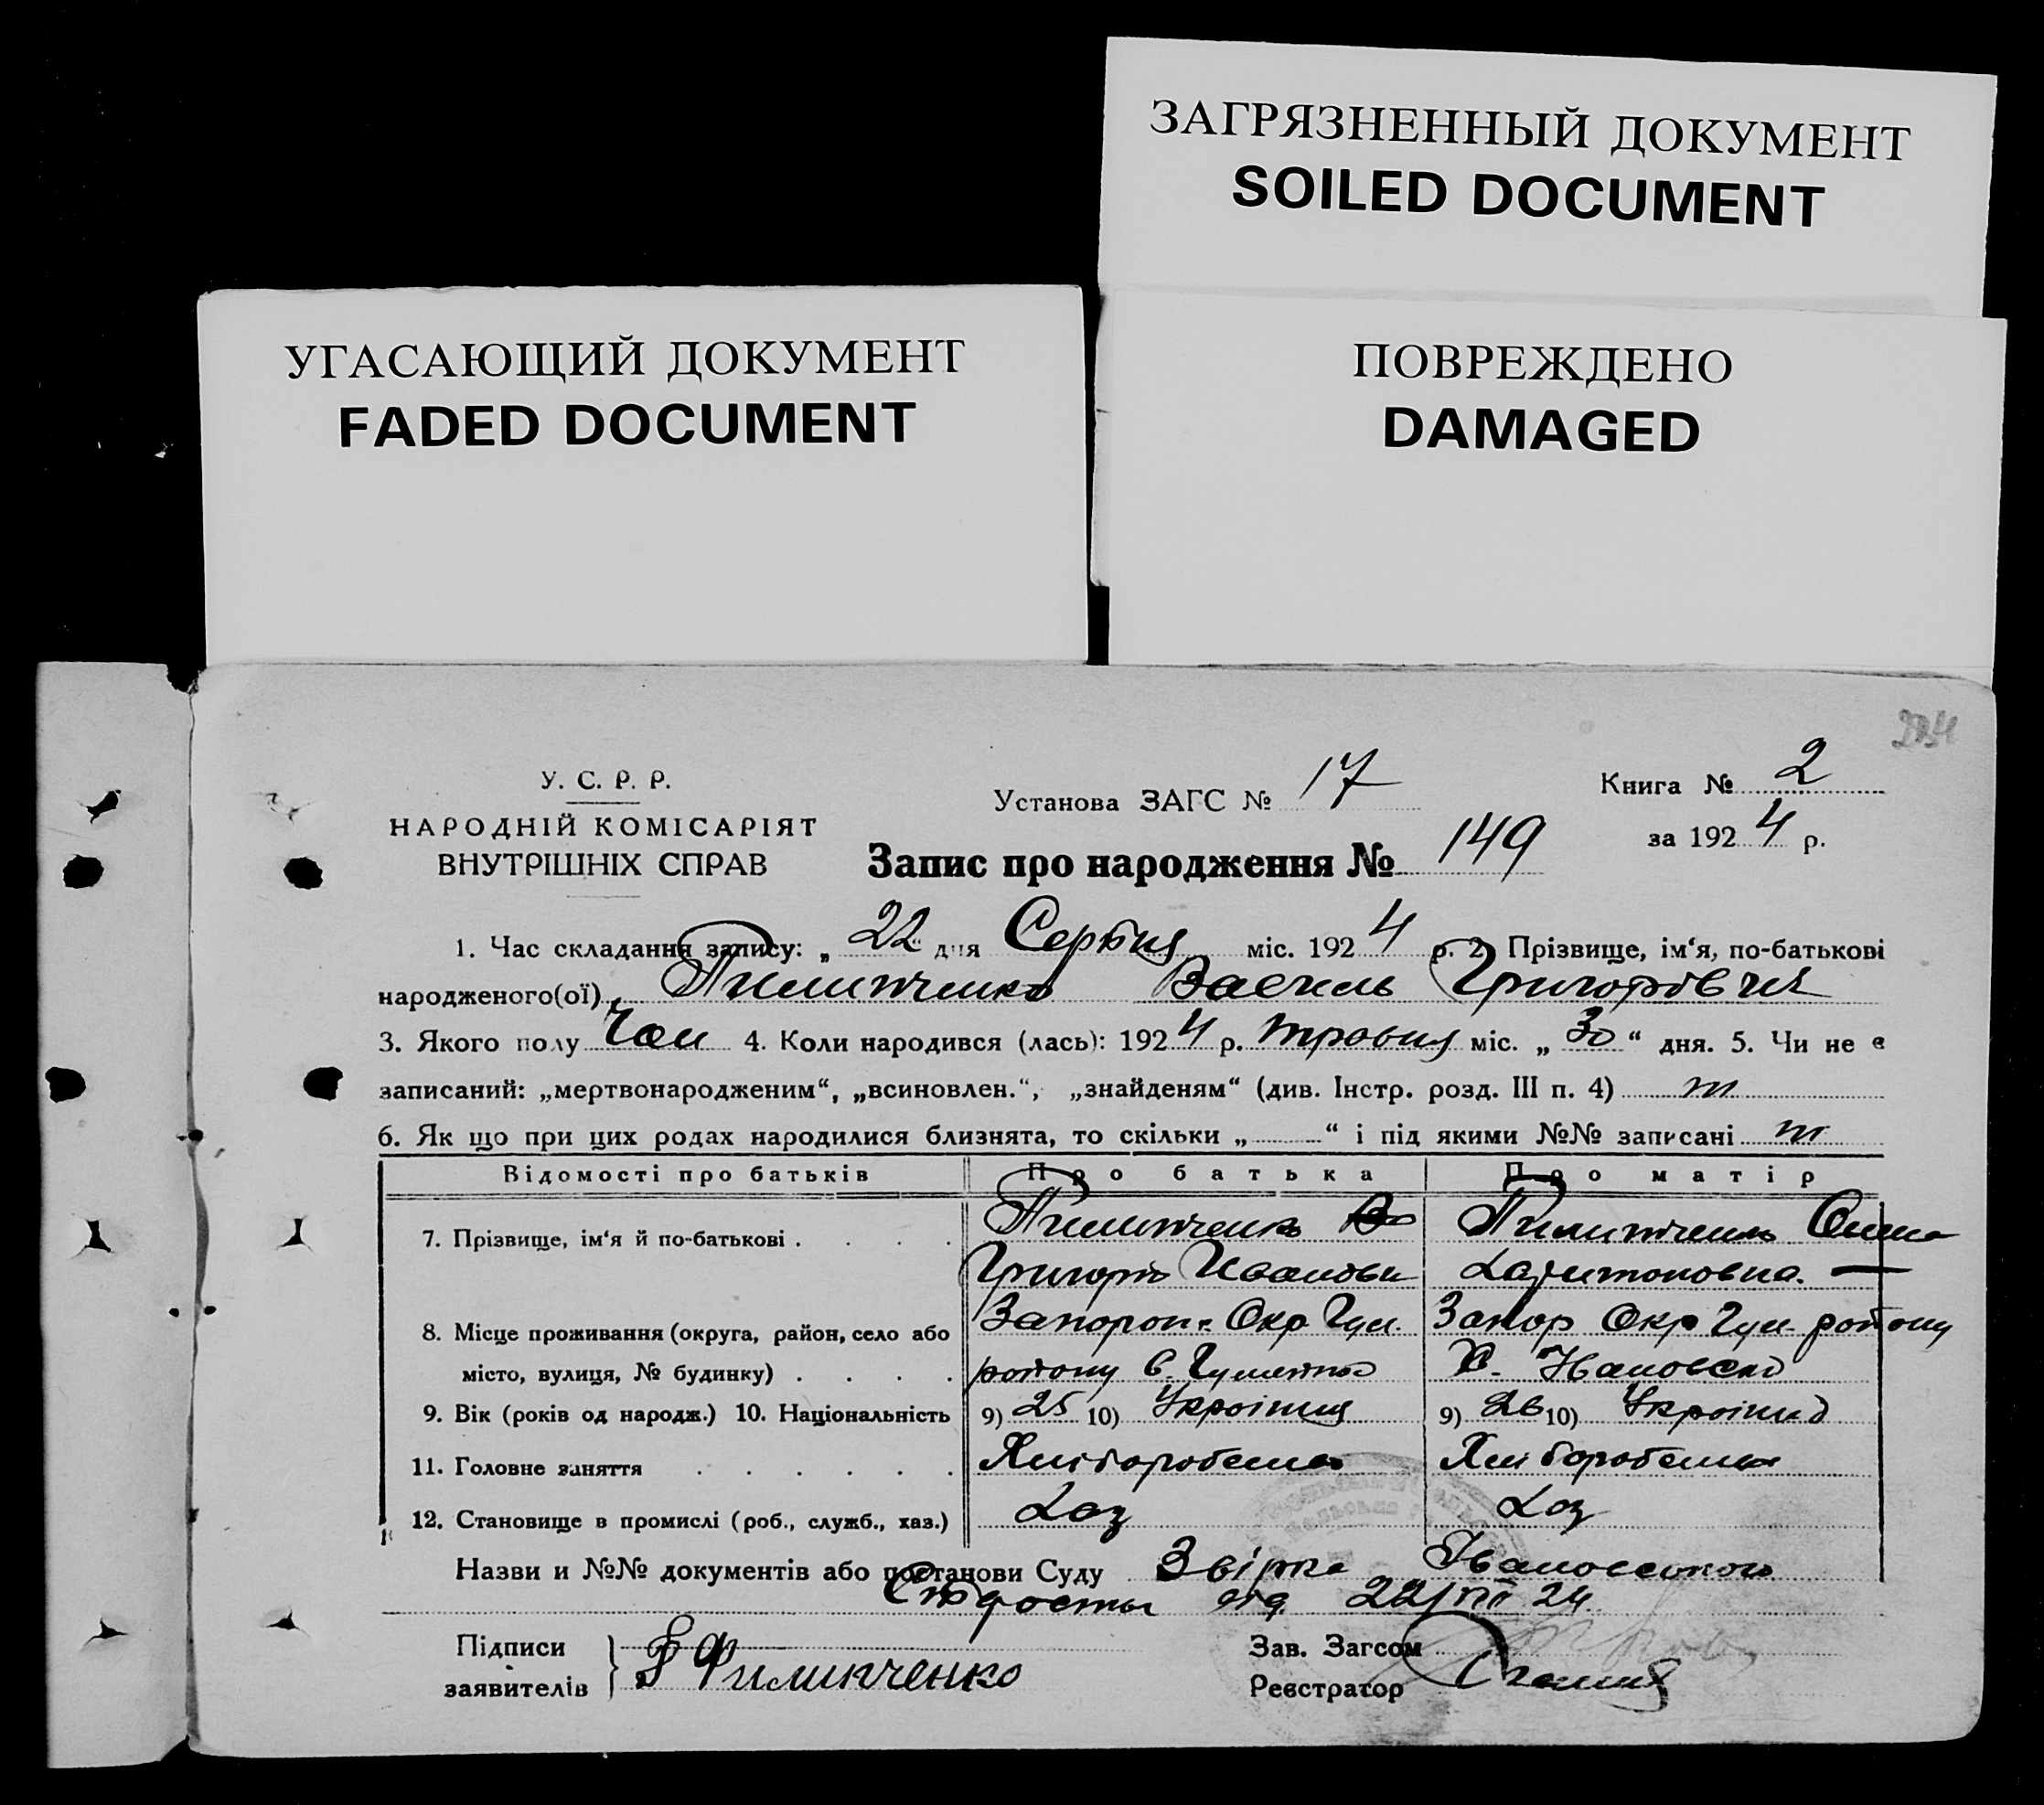 ЗАГРЯЗНЕННЫЙ ДОКУМЕНТ
SOILED DOCUMENT
УГАСАЮЩИЙ ДОКУМЕНТ
FADED DOCUMENT
ПОВРЕЖДЕНО
DAMAGED
У. С. Р. Р.
НАРОДНІЙ КОМІСАРІЯТ
ВНУТРІШНІХ СПРАВ
Установа ЗАГС № 17
Книга № 2
за 1924 р.
Запис про народження № 149
1. Час складання запису: „22“ дня Серпня міс. 1924 р. 2. Прізвище, ім‘я, по-батькові
народженого(ої) Пилипченко Василь Григорович
3. Якого полу Чол 4. Коли народився (лась): 1924 р. травня міс. „30“ дня. 5. Чи не є
записаний: „мертвонародженим“, „всиновлен.“, „знайденям“ (див. Інстр. розд. III п. 4)
6. Як що при цих родах народилися близнята, то скільки „ “ і під якими №№ записані
Відомості про батьків Про батька Про матір
7. Прізвище, ім‘я й по-батькові . . . . Пилипченко Пилипченко
Григорій Иванови Харитоновна. —
8. Місце проживання (округа, район, село або Запорож. Окр Гул. Запор Окр Гул. району
місто, вулиця, № будинку) . . . . району с. Х. Ивановско
9. Вік (років од народж.) 10. Національність 9) 25 10) Україниц 9) 26 10) Україн
11. Головне заняття . . . . . . Хлібороб Хлібороб
12. Становище в промислі (роб., служб., хаз.) Хаз Хаз
Назви и №№ документів або постанови Суду Звірка Івановського
Старости від 22/VIII 24
Підписи
заявителів Г Филипченко
Зав. Загсом
Реєстратор